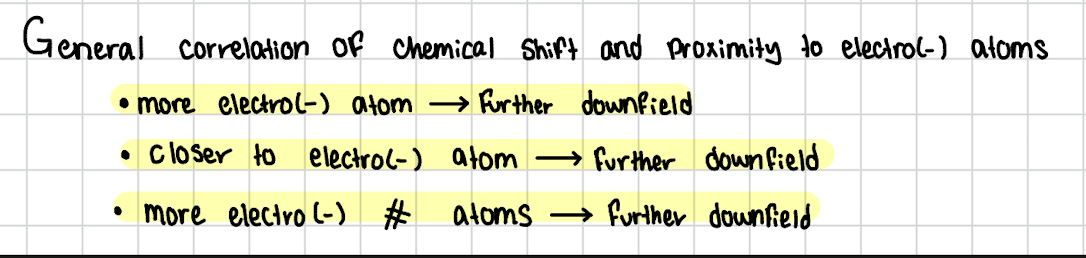 General correlation of chemical shift and proximity to electro(-) atoms
• more electro(-) atom → further downfield
• closer to electro(-) atom → further downfield
• more electro(-) # atoms → further downfield